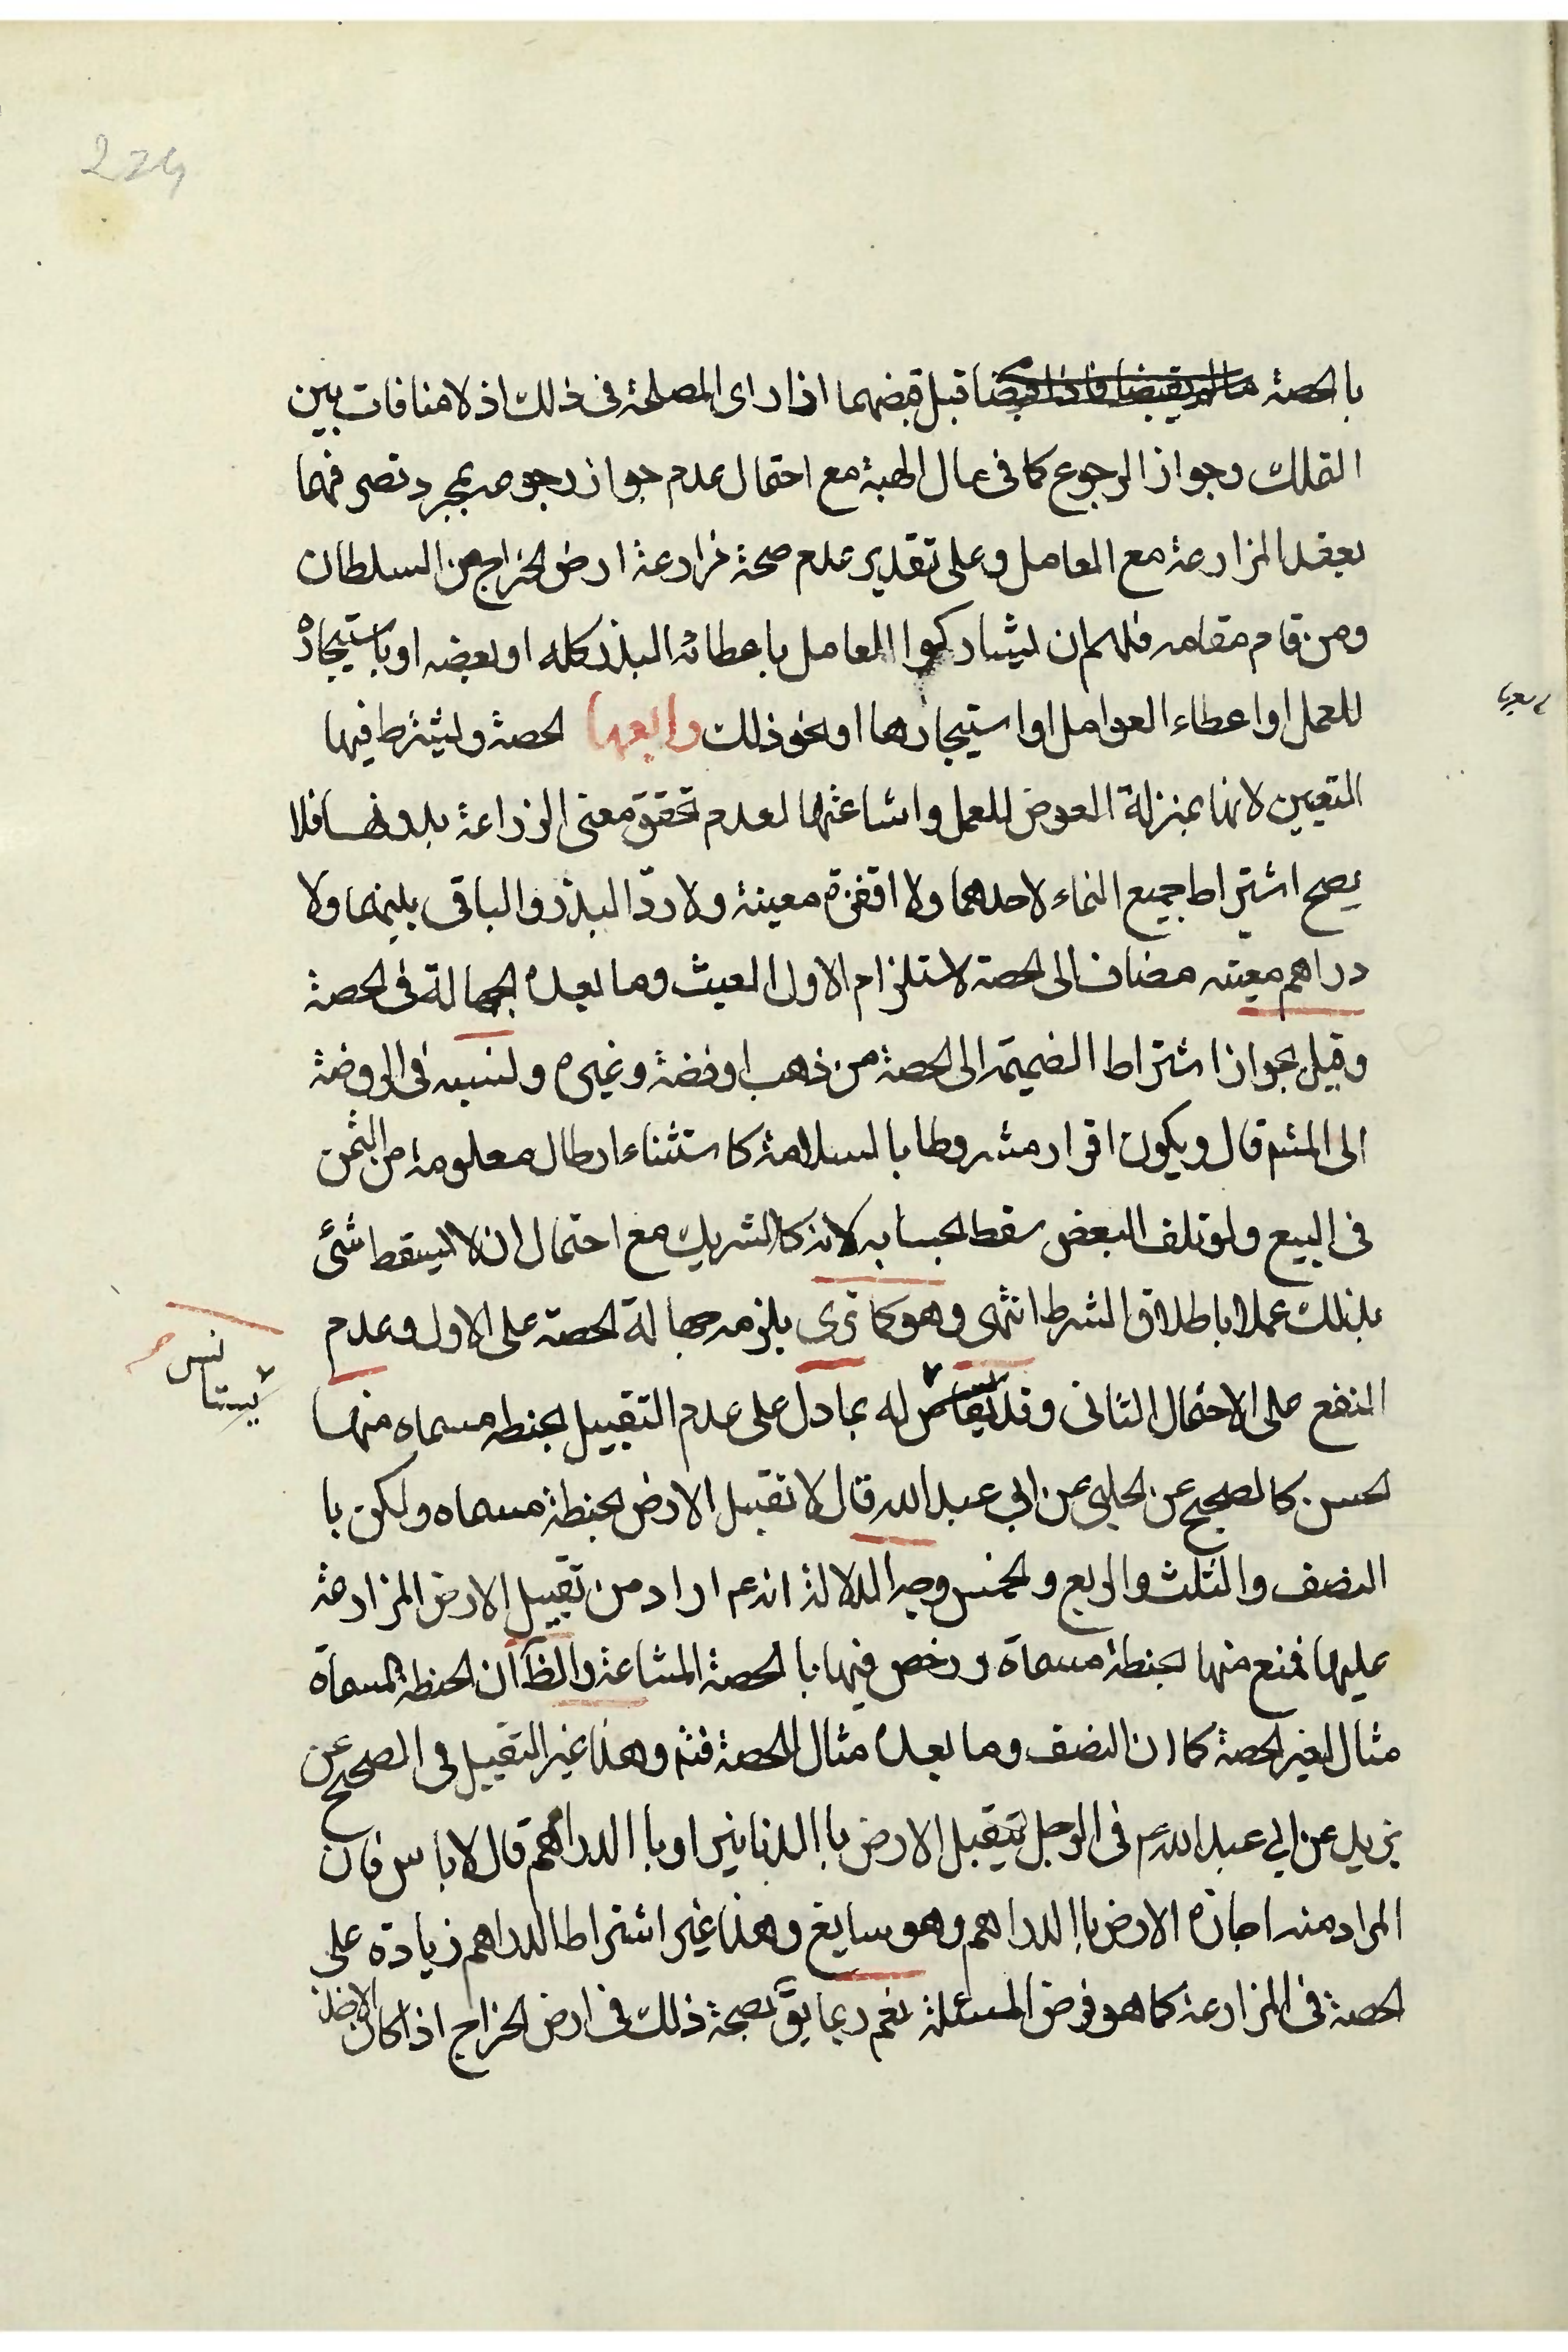 224
بالحصة ما لم يقبضا فاذا قبضا قبل قبضهما اذا راى المصلحة فى ذلك اذ لا منافات بين
التملك وجواز الرجوع كما فى مال الهبة مع احتمال عدم جواز رجوعه بمجرد تصرفهما
بعقد المزارعة مع العامل وعلى تقدير عدم صحة مزارعة ارض الخراج من السلطان
ومن قام مقامه فلهم ان ليشاركوا العامل باعطائه البذر كله او بعضه او باستيجاره
للعمل او اعطاء العوامل او استيجارها او نحو ذلك رابعها الحصة وليشترط فيها
التعيين لانها بمنزلة العوض للعمل واشاعتها لعدم تحقق معنى الزراعة بدونها فلا
يصح اشتراط جميع النماء لاحدهما ولا اقفزة معينة ولا ردّ البذر والباقى بينهما ولا
دراهم معينه مضاف الى الحصة لاستلزام الاول العبث وما بعده الجهالة فى الحصة
وقيل بجواز اشتراط الضميمة الى الحصة من ذهب او فضة وغيره ولنسبه فى الروضة
الى المشم قال ويكون اقرار مشروطا بالسلامة كاستثناء ارطال معلومة من الثمن
فى البيع ولو تلف البعض سقط بحسابه لانه كالشريك مع احتمال ان لا ليسقط شئى
بذلك عملا باطلاق الشرط انتهى وهو كما ترى يلزمه جهالة الحصة على الاول وعدم
النفع على الاحتمال الثانى وقد له بما دل على عدم التقبيل بحنطه مسماه منها
يستانس
الحسن كالصحيح عن الحلبى عن ابي عبد الله قال لا تقبل الارض بحنطة مسماه ولكن با
النصف والثلث والربع والخمس وجه الدلالة انه عم اراد من تقبيل الارض المزارعة
عليها فمنع منها بحنطة مسماة ورخص فيها بالحصة المشاعة والظ ان الحنطة المسماة
مثال لغير الحصة كما ان النصف وما بعده مثال للحصة فتم وهذا غير التقبيل فى الصحيح عن
يزيد عن ابي عبد الله فى الرجل يتقبل الارض باالدنانير او باالدراهم قال لا باس فان
المراد منه اجازة الارض باالدراهم وهو سايغ وهذا غير اشتراط الدراهم زيادة على
الحصة فى المزارعة كما هو فرض المسئلة نعم ربما يقّ بصحة ذلك فى ارض الخراج اذا كان